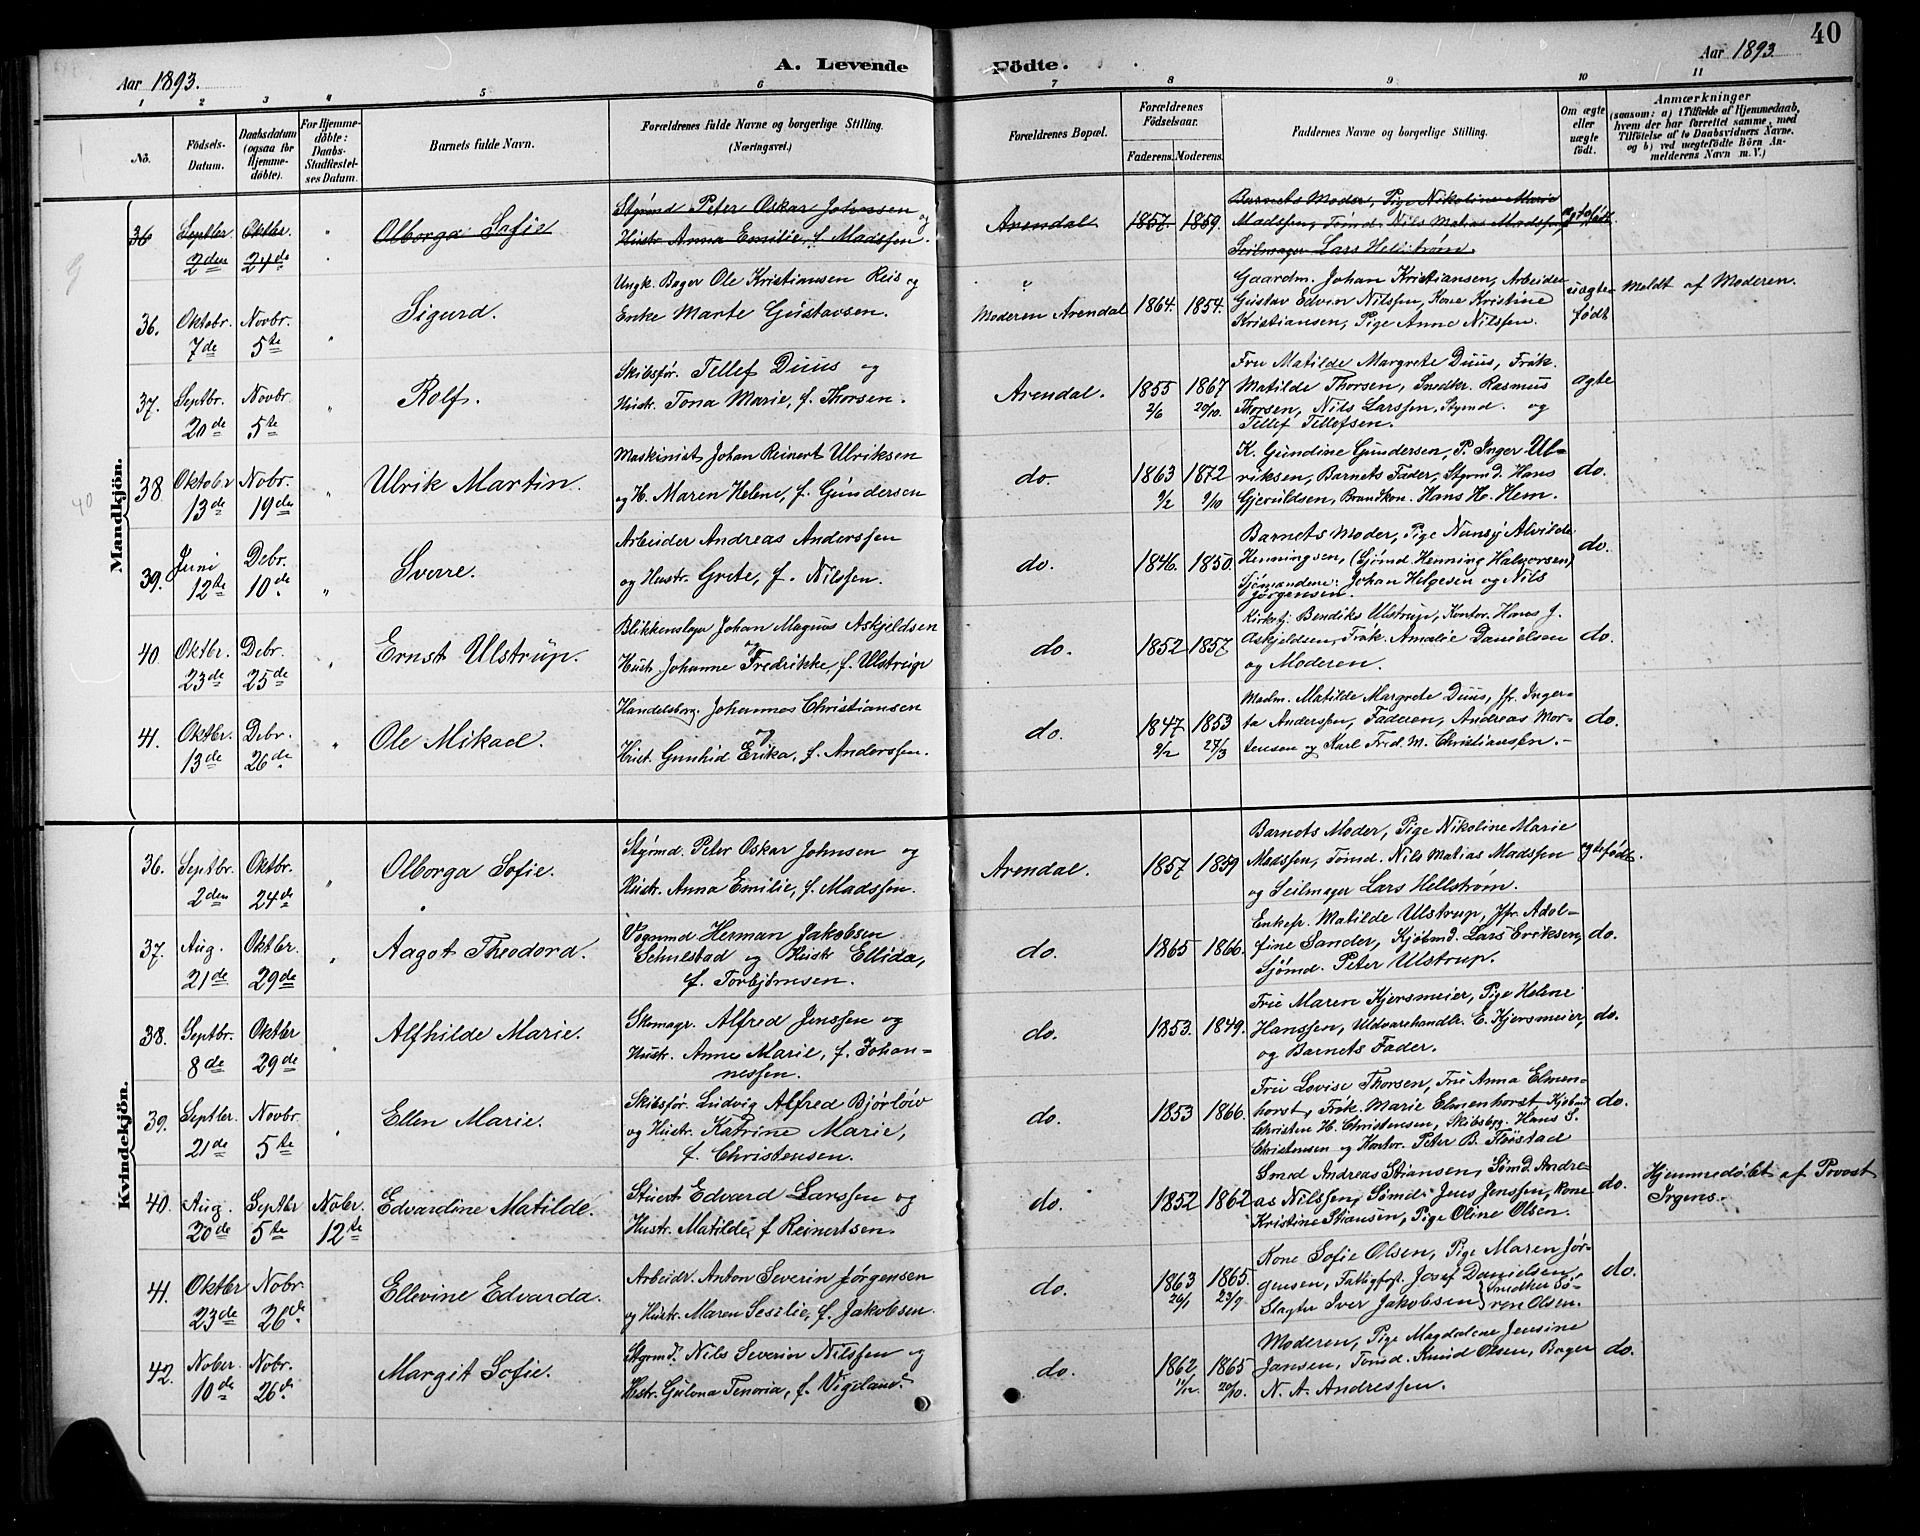 40
Aar 1893. A. Levende Födte. Aar 1893.
1 2 3 4 5 6 7 8 9 10 11
No.
Födsels-Datum.
Daabsdatum (ogsaa for Hjemmedöbte).
For Hjemmedöbte: Daabs-Stadfæstelses Datum.
Barnets fulde Navn.
Forældrenes fulde Navne og borgerlige Stilling.
(Næringsvei.)
Forældrenes Bopæl.
Forældrenes Födselsaar.
Faderens. Moderens.
Faddernes Navne og borgerlige Stilling.
Om ægte eller uægte födt.
Anmærkninger
(saasom: a) i Tilfælde af Hjemmedaab,
hvem der har forrettet samme, med
Tilföielse af to Daabsvidners Navne.
og b) ved uægtefödte Börn Anmelderens Navn m. V.)
Mandkjön.
36 Septber. 2den Oktbr. 24de " Olborga Sofie
Styrmd Peter Oskar Johnsen og
Hustr Anna Emilie, f. Madssen.
Arendal 1857. 1859.
Barnets Moder, Pige Nikoline Marie
Madssen, Tømd. Nils Matias Madssen
Seilmager Lars Hellstrøm.
ægtefødt
36. Oktobr. 7de Novbr. 5te " Sigurd.
Ungk. Bager Ole Kristiansen Reis og
Enke Marte Gustavsen.
Moderen Arendal 1864. 1854.
Gaardm. Johan Kristiansen, Arbeider
Gustav Edvin Nilssen, Kone Kristine
Kristiansen, Pige Anne Nilssen.
uægte født
Meldt af Moderen.
37. Septbr. 20de Novbr. 5te " Rolf.
Skibsfør. Tellef Duus og
Hustr. Tona Marie, f. Thorsen.
Arendal. 1855 2/6 1867 20/10.
Fru Matilde Margrete Duus, Frøk.
Matilde Thorsen, Snedkr. Rasmus
Thorsen, Nils Larssen, Stymd. og
Tellef Tellefsen.
ægte
38 Oktobr 13de Nobr. 19de " Ulrik Martin.
Maskinist Johan Reinert Ulriksen
og H. Maren Helene, f. Gundersen
do. 1863 9/2 1872 9/10
K. Gundine Gundersen, P. Inger Ul-
riksen, Barnets Fader, Styrmd. Hans
Gjeruldsen, Brandkon. Hans H. Hem.
do.
39. Juni 12te Debr. 10de " Sverre.
Arbeider Andreas Anderssen
og Hustr. Grete, f. Nilssen.
do. 1846. 1850.
Barnets Moder, Pige Nansy Alvilde
Henningsen, (Sjømd Henning Halvorsen)
Sjømændene: Johan Helgesen og Nils
Jørgensen.
do.
40. Oktbr. 23de Debr. 25de " Ernst Ulstrup.
Blikkenslager Johan Magnus Askjeldsen
og
Hustr. Johanne Fredrikke, f. Ulstrup
do. 1852 1857
Kirkstj. Bendiks Ulstrup, Kontor. Hans J.
Askjeldsen, Frøk. Amalie Danielsen
og Moderen.
do.
41. Oktbr. 13de Debr. 26de " Ole Mikael.
Handelsborg. Johannes Christiansen
og
Hust. Gunhid Erika, f. Anderssen.
do. 1847 9/2 1853 27/3
Madm. Matilde Margrete Duus, Jfr. Inger-
ta Anderssen, Faderen, Andreas Mor-
tensen og Karl Fred. M. Christianssen.-
do.
Kvindekjön.
36. Septbr. 2den Oktbr. 24de " Olborga Sofie.
Styrmd. Peter Oskar Johnsen og
Hustr. Anna Emilie, f. Madssen.
Arendal. 1857 1859
Barnets Moder, Pige Nikoline Marie
Madssen, Tømd. Nils Matias Madssen
og Seilmager Lars Hellstrøm.
ægtefødt.
37. Aug. 21de Oktbr. 29de " Aagot Theodora.
Vognmd. Herman Jakobsen
Schulstad og Hustr Ellida,
f. Torbjørnsen.
do. 1865 1866.
Enkefr. Matilde Ulstrup, Jfr. Adol-
fine Sander, Kjøbmd. Lars Eriksen,
Sjømd. Peter Ulstrup.
do.
38. Septbr. 8de Oktbr 29de " Alfhilde Marie.
Skomagr. Alfred Jenssen og
Hustr. Anne Marie, f. Johan-
nessen.
do. 1853. 1849.
Fru Maren Kjersmeier, Pige Helene
Hanssen, Uldvarehandlr. E. Kjersmeier,
og Barnets Fader.
do.
39. Septber. 21de Novbr. 5te " Ellen Marie.
Skibsfør. Ludvig Alfred Bjørlow
og Hustr. Katrine Marie,
f. Christensen.
do. 1853 1866.
Fru Lovise Thorsen, Fru Anna Elmen-
horst, Frøk. Marie Elmenhorst Kjøbmd
Christen H. Christensen, Skibsbyg. Hans S.
Christensen og Kontor. Peter B. Fløistad
do.
40. Aug. 20de Septbr 5te Nobr. 12te Edvardine Matilde.
Stuert Edvard Larssen og
Hustr. Matilde, f Reinertsen.
do. 1852 1862
Smed Andreas Stiansen, Sømd. Andre-
as Nilssen, Sømd. Jens Jenssen, Kone
Kristine Stiansen, Pige Oline Olsen.
do.
Hjemmedøbt af Provst
Irgens.
41. Oktbr 23de Nobr. 26de Ellevine Edvarda.
Arbeidr. Anton Severin Jørgensen
og Hustr. Maren Sesilie, f. Jakobsen.
do. 1863 26/1 1865. 23/9
Kone Sofie Olsen, Pige Maren Jør-
gensen, Fattigforst. Josef Danielsen,
Slagter Iver Jakobsen Smedker Sø-
ren Olsen.
do.
42. Nober. 10de Nobr. 26de Margit Sofie.
Styrmd. Nils Severin Nilssen og
Hstr. Gulena Tenoria, f. Vigeland.
do. 1862 11/12 1865 20/10.
Moderen, Pige Magdalene Jensine
Jansen, Tømd. Knud Olsen, Bager
N. A. Andressen.
do.